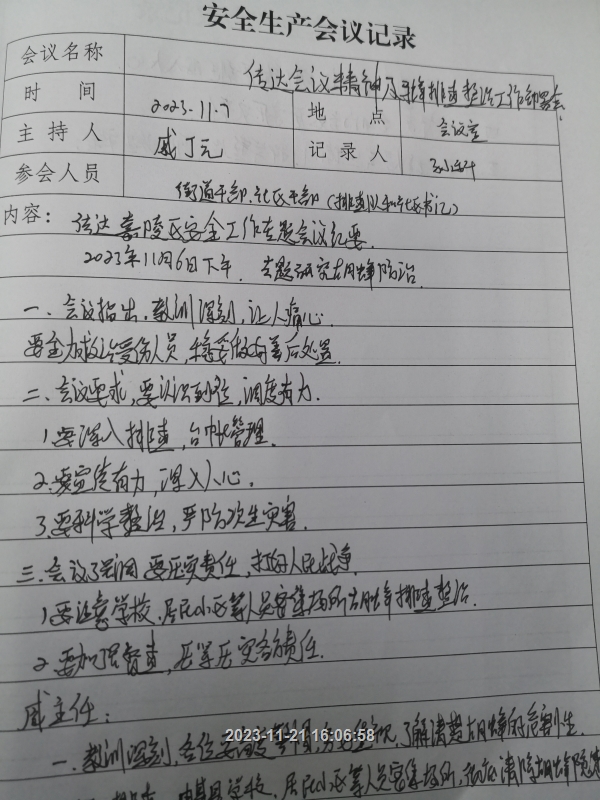 安全生产会议记录
会议名称 传达会议精神及胡蜂排查整治工作部署会
时 间 2023.11.7 地 点 会议室
主 持 人 戚丁元 记 录 人
参会人员 街道干部、社区干部（排查队和社区书记）
内容： 传达嘉陵区安全工作专题会议纪要.
2023年11月6日下午. 专题研究胡蜂防治.
一、会议指出,教训深刻,让人痛心.
要全力救治受伤人员,稳妥做好善后处置.
二、会议要求,要认识到位,调度有力.
1.要深入排查,台账管理.
2.要宣传有力,深入人心.
3.要科学整治,严防次生灾害.
三、会议强调 要压实责任,打好人民战争
1.要注意学校、居民小区等人员密集场所胡蜂排查整治.
2.要加强督查,压紧压实各方责任.
戚主任：
一、教训深刻,各位要高度重视,分 了解清楚胡蜂危害性.
学校、居民小区等人员密集场所, 清除胡蜂隐患
2023-11-21 16:06:58